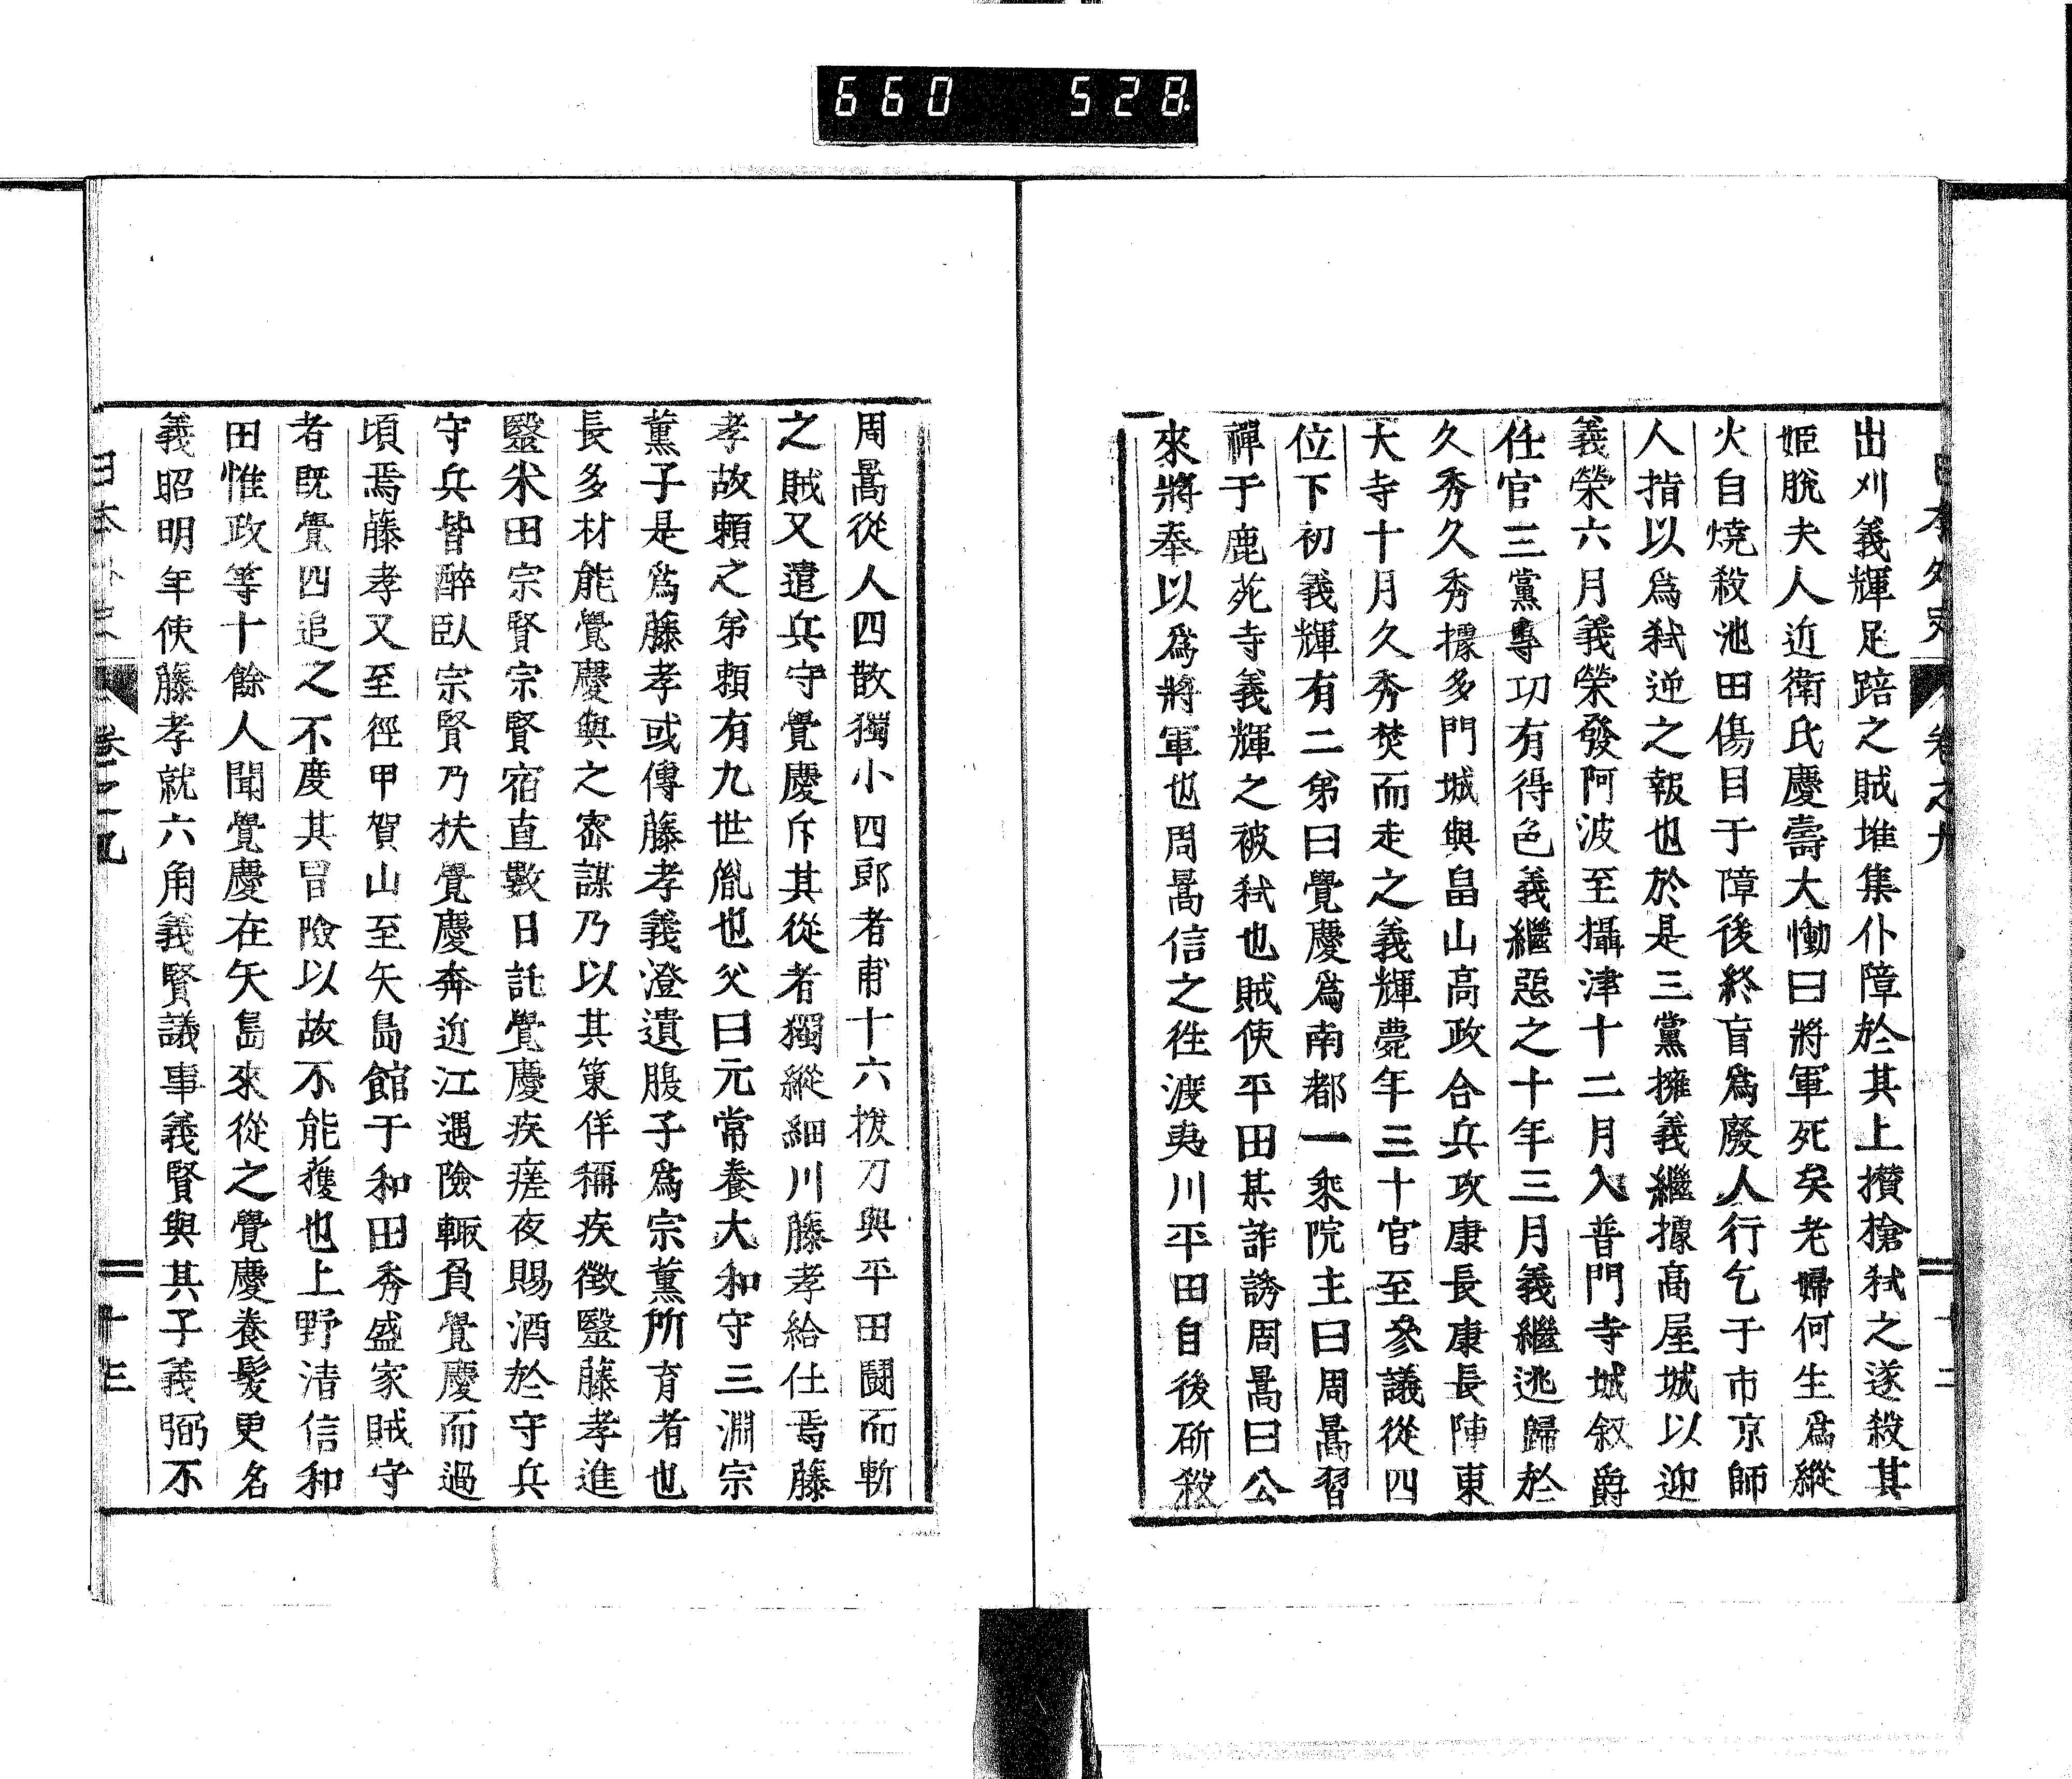 660 528
日本外史 卷之九
出刈義輝足踣之賊堆集仆障於其上攢槍弒之遂殺其
姬脫夫人近衛氏慶壽大慟曰將軍死矣老婦何生爲縱
火自燒殺池田傷目于障後終盲爲廢人行乞于市京師
人指以爲弒逆之報也於是三黨擁義繼據高屋城以迎
義榮六月義榮發阿波至攝津十二月入普門寺城叙爵
任官三黨專功有得色義繼惡之十年三月義繼逃歸於
久秀久秀據多門城與畠山高政合兵攻康長康長陣東
大寺十月久秀焚而走之義輝薨年三十官至參議從四
位下初義輝有二弟曰覺慶爲南都一乘院主曰周暠習
禪于鹿苑寺義輝之被弒也賊使平田某詐誘周暠曰公
來將奉以爲將軍也周暠信之徃渡夷川平田自後斫殺
周暠從人四散獨小四郎者甫十六拔刀與平田鬪而斬
之賊又遣兵守覺慶斥其從者獨縱細川藤孝給仕焉藤
孝故賴之弟賴有九世胤也父曰元常養大和守三淵宗
薰子是爲藤孝或傳藤孝義澄遺腹子爲宗薰所育者也
長多材能覺慶與之密謀乃以其策佯稱疾徵醫藤孝進
醫米田宗賢宗賢宿直數日託覺慶疾瘥夜賜酒於守兵
守兵皆醉臥宗賢乃扶覺慶奔近江遇險輙負覺慶而過
頃焉藤孝又至徑甲賀山至矢島館于和田秀盛家賊守
者既覺四追之不度其冒險以故不能獲也上野清信和
田惟政等十餘人聞覺慶在矢島來從之覺慶養髮更名
義昭明年使藤孝就六角義賢議事義賢與其子義弼不
日本外史 卷之九 十三